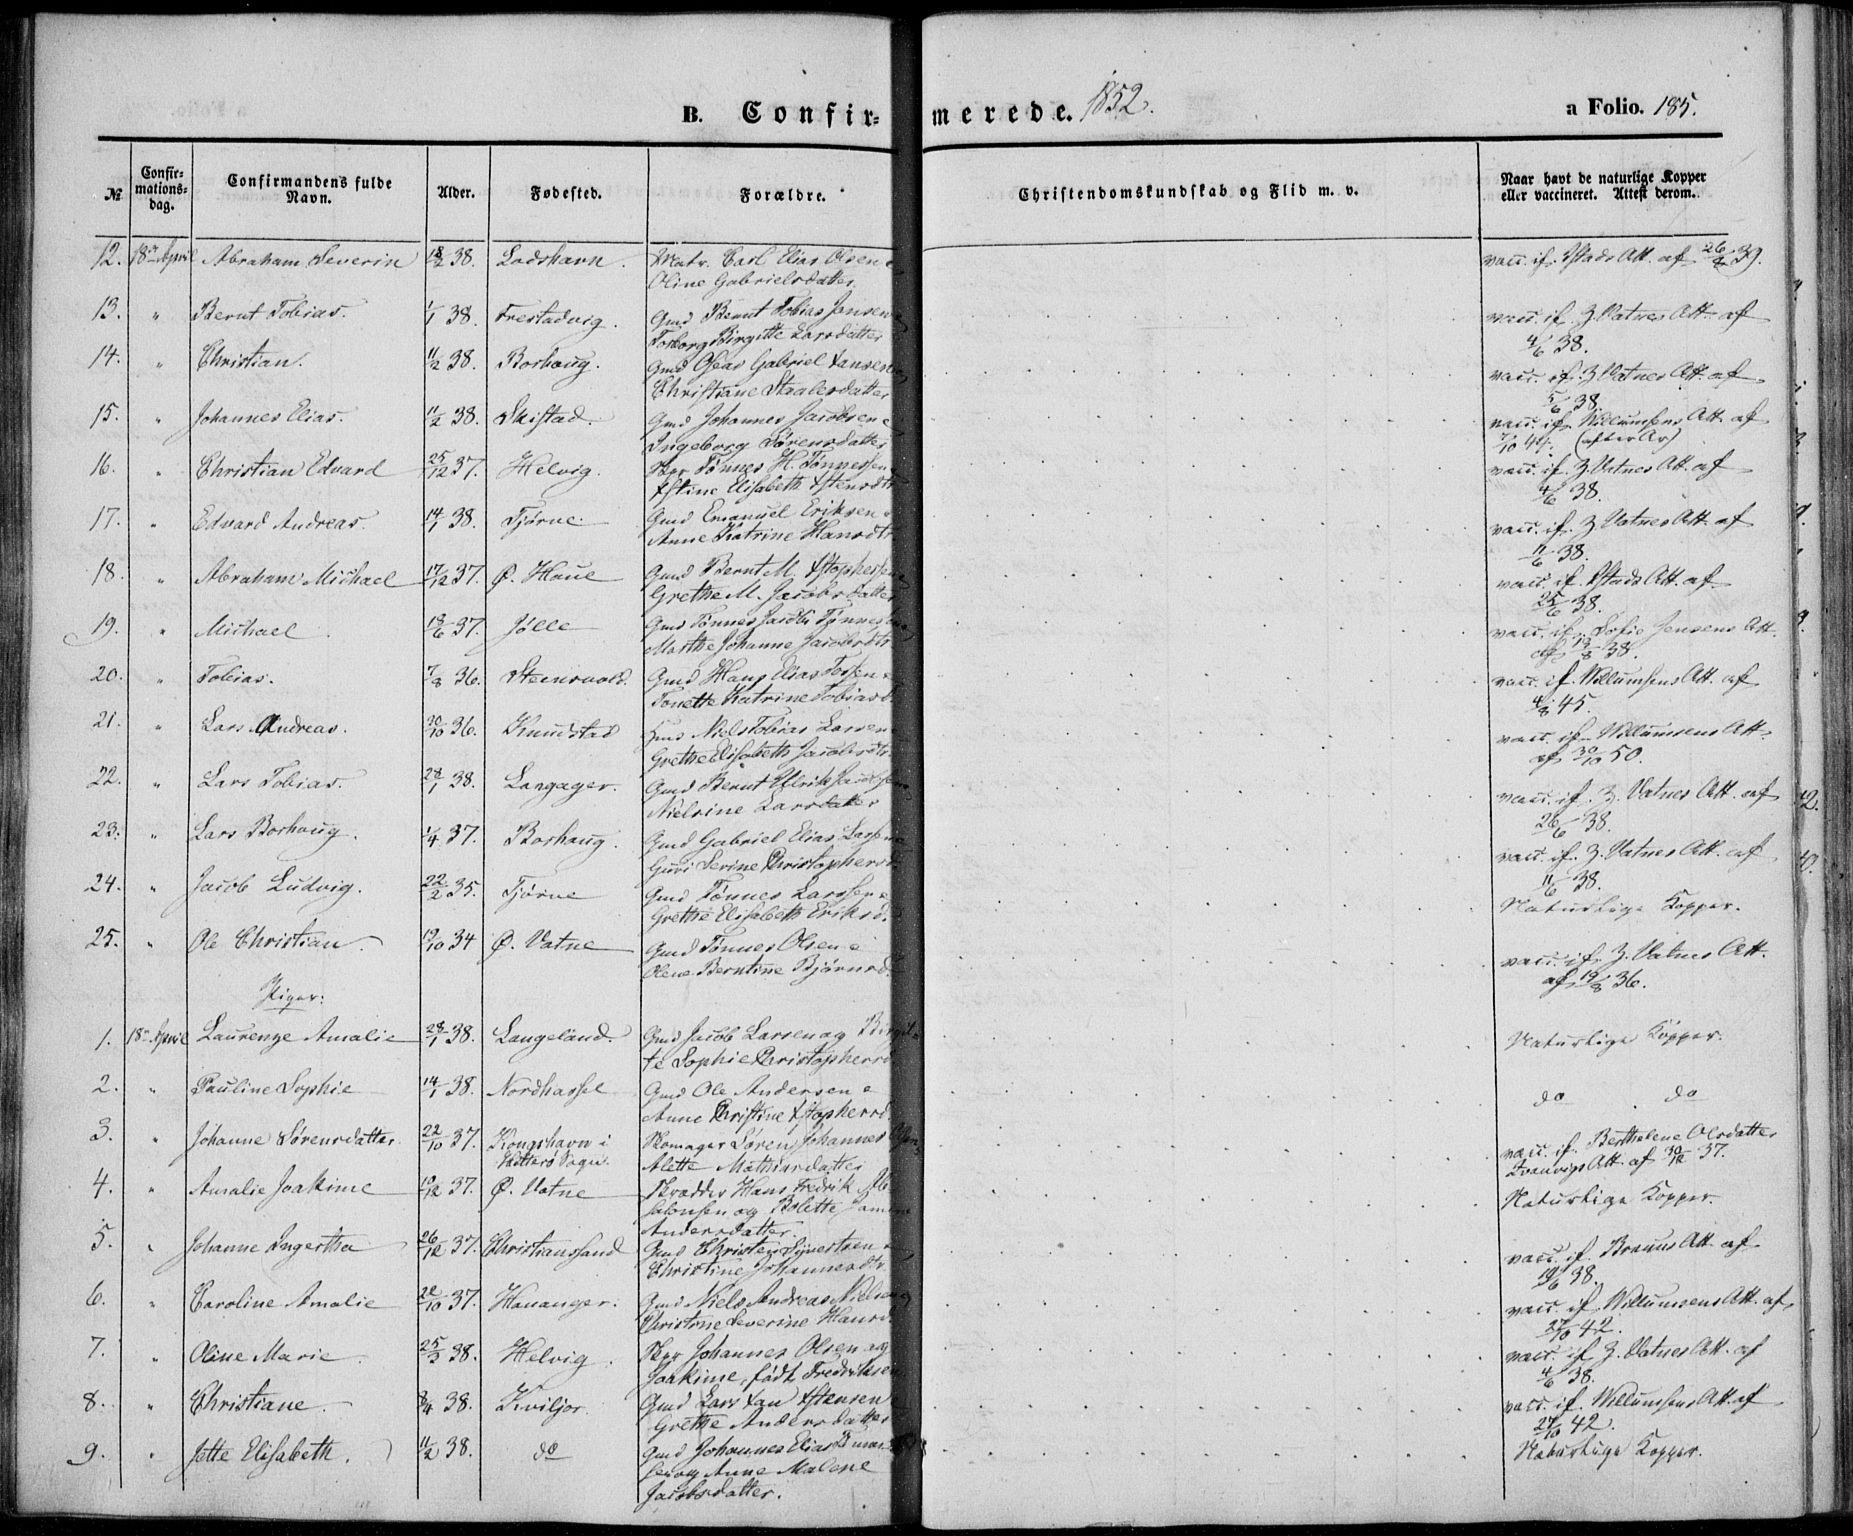 B. Confir-merede. 1852.
a Folio. 185.
№ Confir-mations-dag. Confirmandens fulde Navn. Alder. Fødested. Forældre. Christendomskundskab og Flid m. v. Naar havt de naturlige Kopper eller vaccineret. Attest derom.
12. 18de April Abraham Severin 18/2 38. Ladshavn. Matr. Carl Elias Olsen vacc. if. Ystads Att. af 26/6 39.
Oline Gabrielsdatter.
13. " Bernt Tobias. 1/1 38. Frestadvig. Gmd Bernt Tobias Jensen vacc. if. Z. Vatnes Att. af
Birgitte Larsdatter 4/6 38.
14. " Christian. 11/2 38. Borhaug. Gmd Gabriel vacc. if. Z. Vatnes Att. af
Christiane Staalesdatter 5/6 38.
15. " Johannes Elias. 11/2 38. Skistad. Gmd Johannes Jacobsen vacc. if. Willumsens Att. af
Ingeborg Sørensdatter 7/10 44. (efter Ar)
16. " Christian Edvard 25/12 37. Helvig. Skpr Tønnes H. Tønnessen vacc. if. Z. Vatnes Att. af
Elisabeth 4/6 38.
17. " Edvard Andreas. 14/1 38. Tjørve. Gmd Emanuel Eriksen vacc. if. Z. Vatnes Att. af
Anne Katrine Hansdtr 11/6 38.
18. " Abraham Michael 17/12 37. Ø. Haue Gmd Bernt M. Xstophersen vacc. if. Ystads Att. af
Grethe M. Jacobsdatter 25/6 38.
19. " Michael. 18/6 37. Jølle Gmd Tønnes Jacob Tønnes vacc. if. Sofie Jensens Att.
Marthe Johanne Jacobsdtr af 13/8 38.
20. " Tobias. 7/8 36. Steensvold. Gmd Hans Elias vacc. if. Willumsens Att. af
Tonette Katrine Tobiasd 4/8 45.
21. " Lars Andreas. 30/10 36. Knudstad Niels Tobias Larsen vacc. if. Willumsens Att.
Grethe Elisabeth Jacobsdtr af 30/10 50.
22. " Lars Tobias. 28/1 38. Langager. Gmd Bernt Ulrik vacc. if. Z. Vatnes Att. af
Nielsine Larsdatter 26/6 38.
23. " Lars Borhaug. 1/4 37. Borhaug. Gmd Gabriel Elias Larsen vacc. if. Z. Vatnes Att. af
Guri Serine Christophersd 11/6 38.
24. " Jacob Ludvig. 22/2 35. Tjørve Gmd Tønnes Larssen Naturlige Kopper.
Grethe Elisabeth Eriksd.
25. " Ole Christian. 19/10 34 Ø. Vatne Gmd Tønnes Olsen vacc. if. Z. Vatnes Att.
Olene Berntine Bjørnsd. af 19/8 36.
Piger:
1. 18de April Laurenze Amalie 28/1 38. Langeland. Gmd Jacob Larsen og Birgit- Naturlige Kopper.
te Sophie Christophersd
2. " Pauline Sophie 14/1 38. Nordhassel Gmd Ole Andersen do do
Anne Christine Xstophersd
3. " Johanne Sørensdatter 22/10 37. Kongshavn i Skomager Søren Johannes vacc. if. Berthelene Olsdatter
Hitterø Sogn. Alette Mathiasdatter Att. af 30/12 37.
4. " Amalie Joakime 10/12 37. Ø. Vatne Skrædder Hans Fredrik Ab- Naturlige Kopper.
salonsen og Bolette
Andersdatter.
5. " Johanne Ingertha 26/12 37. Christianssand Gmd Christen Syvertsen vacc. if. Att. af
Christine Johannesdtr 19/6 38.
6. " Caroline Amalie 22/10 37. Hananger. Gmd Niels Andreas Nielsen vacc. if. Willumsens Att. af
Christine Severine Hansd 27/10 42.
7. " Oline Marie 25/3 38. Helvig. Skpr Johannes Olsen og vacc. if. Z. Vatnes Att. af
Joakime, født Fredriksen 4/6 38.
8. " Christiane. 8/4 38. Kviljo. Gmd Lars Xstensen vacc. if. Willumsens Att. af
Grethe Andersdatter 27/10 42.
9. " Jette Elisabeth. 11/2 38. do Gmd Johannes Elias Naturlige Kopper.
sen og Anne Malene
Jacobsdatter.